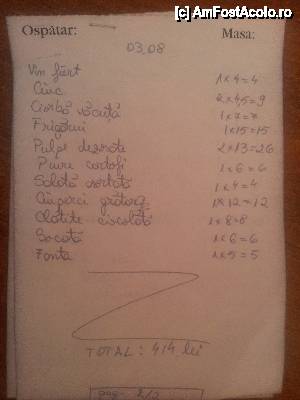 (c) AmFostAcolo.ro
Ospătar: Masa:
03.08
Vin fiert 1x4=4
Ciuc 2x4,5=9
Ciorbă văcuță 1x7=7
Frigărui 1x15=15
Pulpe dezosate 2x13=26
Piure cartofi 1x6=6
Salată asortată 1x4=4
Ciuperci grătar 1x12=12
Clătite ciocolată 1x8=8
Socată 1x6=6
Fanta 1x5=5
TOTAL: 414 lei
pag. 2/2